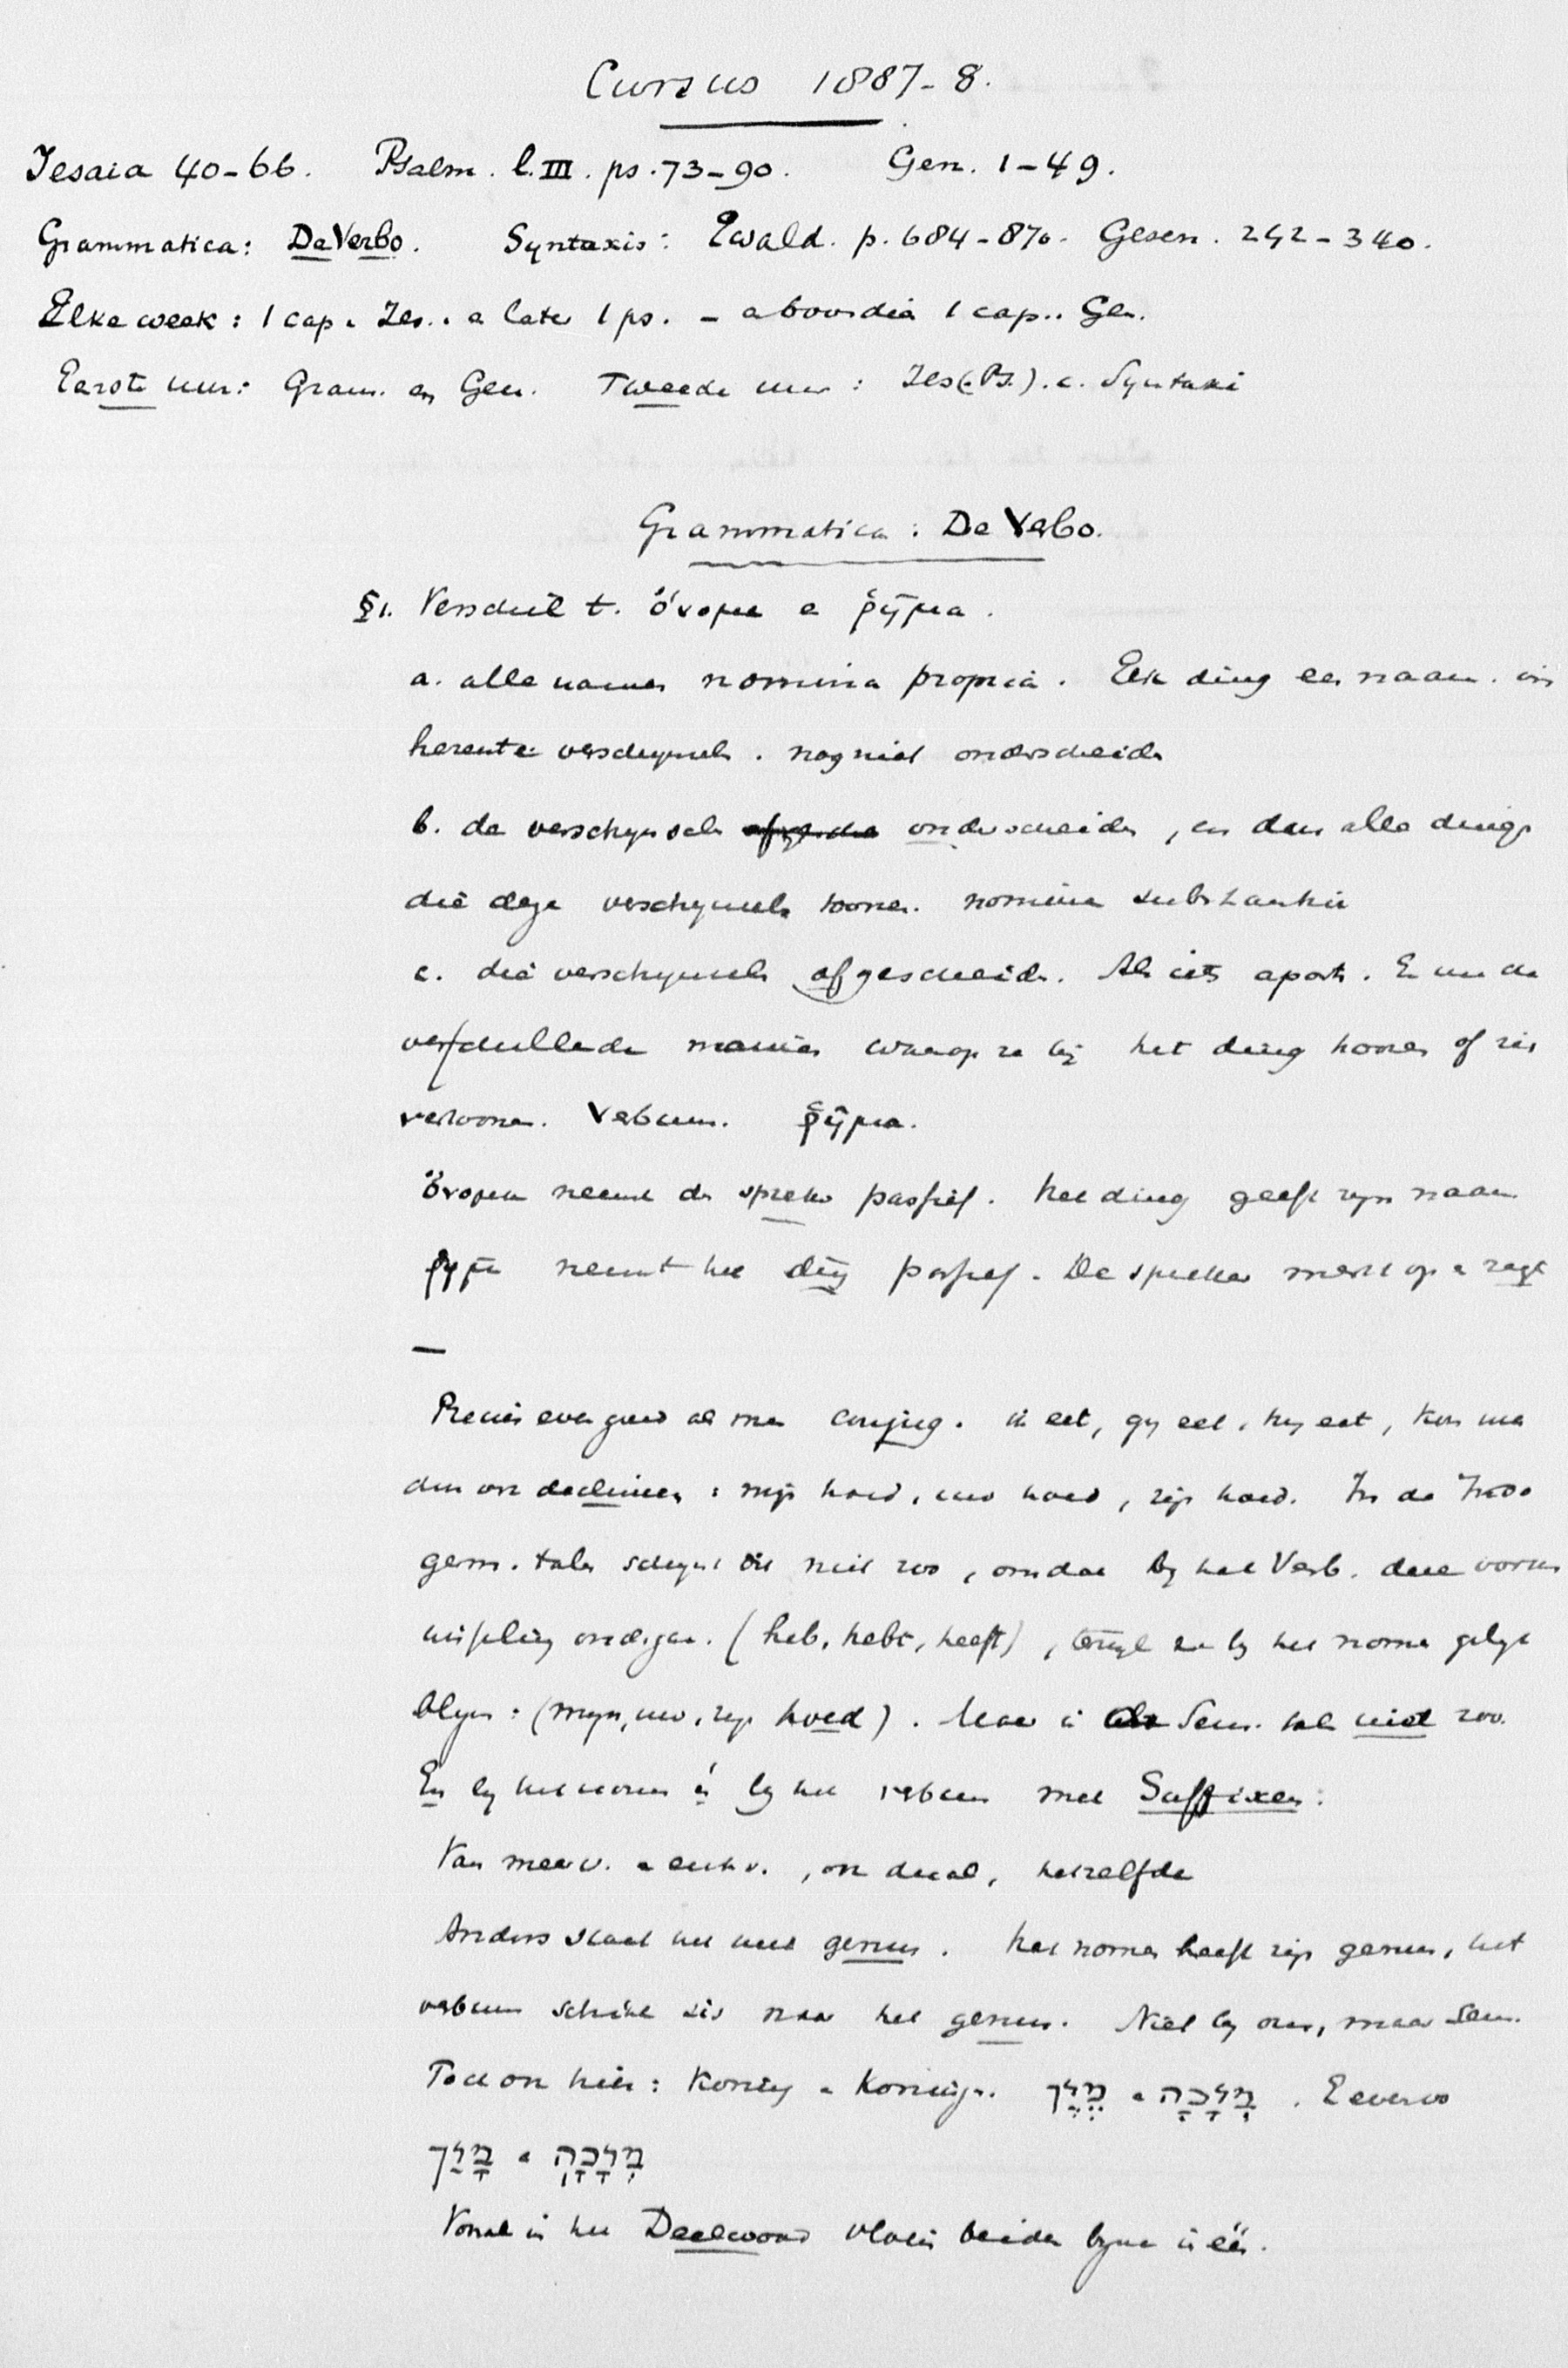 Cursus 1887-8.
Jesaia 40-66. Psalm. l. III. ps. 73-90. Gen. 1-49.
Grammatica: De Verbo. Syntaxis: Ewald. p. 684-870. Gesen. 242-340.
Elke week: 1 cap. Jes. . e later 1 ps. - 1 cap.. Gen.
Eerste uur: Gram. en Gen. Tweede uur: Jes (. Ps.). e. Syntaxi
Grammatica: De Verbo.
§1. Verschil t. ὄνομα e ῥῆμα.
a. alle namen nomina propria. Elk ding een naam. in
verschynsels. nog niet onderscheiden
b. de verschynsels onderscheiden, en dan alle dinge
die deze verschynsels toonen. nomina substantiv
c. die verschynsels afgescheiden. Als iets aparts. En nu de
verschillende manier waarop ze bij het ding komen of zich
vertoonen. Verbum. ῥῆμα.
ὄνομα neemt de spreker passief. het ding geeft zyn naam
ῥῆμα neemt het ding passief. De spreker merkt op e zegt
—
Precies even goed als men conjug. ik eet, gy eet, hy eet, kon men
dus ook declineren: mijn hoed, uw hoed, zijn hoed. In de Indo
germ. talen schynt dit niet zoo, omdat by het Verb. deze vormen
wisseling ondergaan. (heb, hebt, heeft), terwyl ze by het nomen gelyk
blyven: (myn, uw, zijn hoed). Maar in de Sem. talen niet zoo.
En by het nomen én by het verbum met Suffixen:
Van meerv. e enkv., ook dual, hetzelfde
Anders staat het met genus. Het nomen heeft zijn genus, het
verbum schikt zich naar het genus. Niet by ons, maar Sem.
Toch ook hier: Koning e Koningin. מֶלֶךְ e מַלְכָּה. Eevenzoo
מָלַךְ e מָלְכָה
Vooral in het Deelwoord vloeien beiden byna in één.